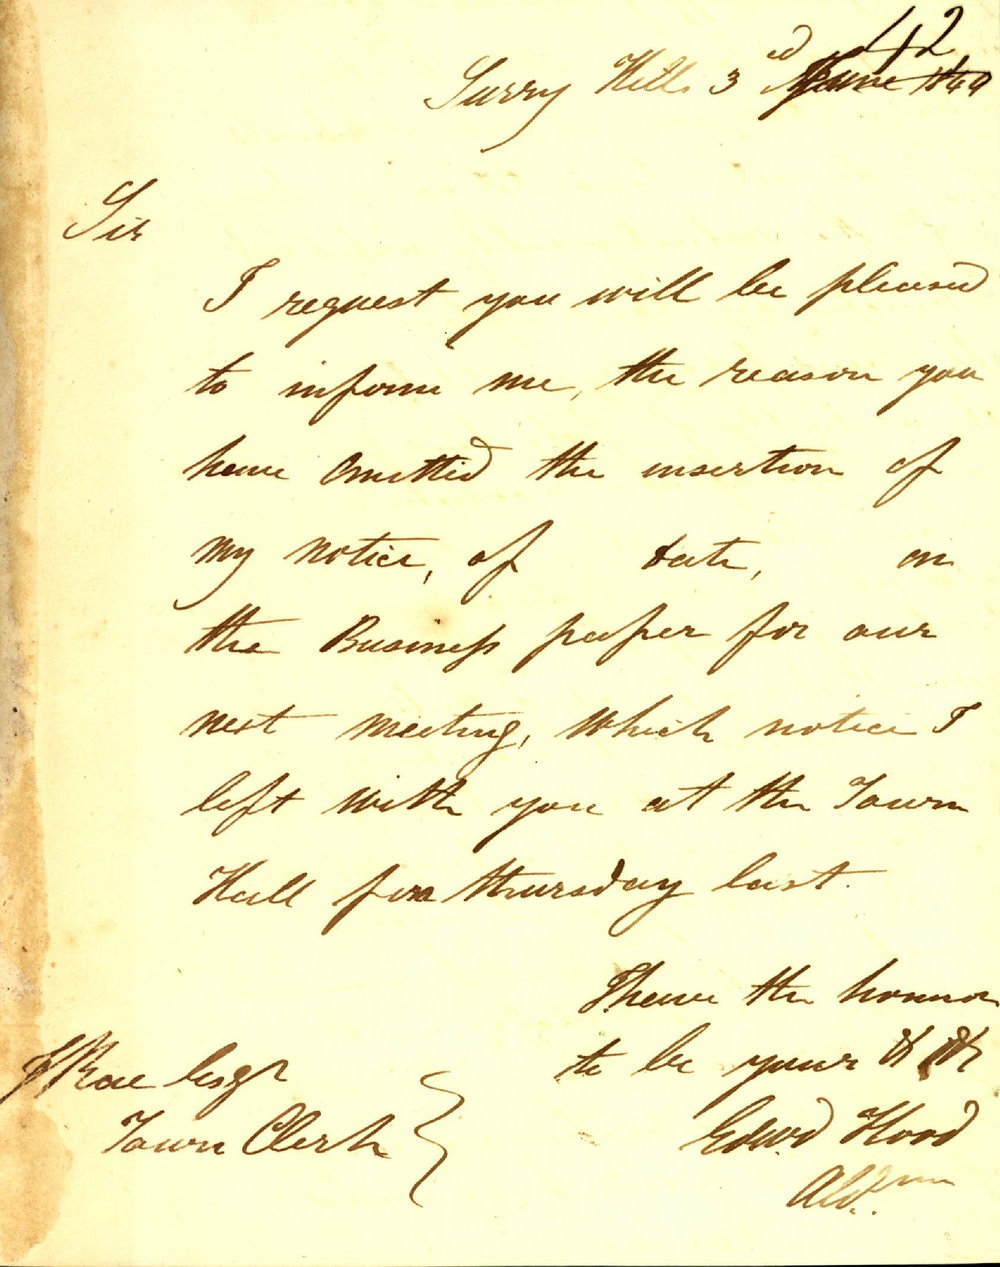 42
Surry Hills 3rd June 1849
Sir
I request you will be pleased
to inform me, the reason you
have Omitted the insertion of
my notice, of date, on
the Business paper for our
next meeting, which notice I
left with you at the Town
Hall for thursday last.
I have the honnor
to be your &c &c
J Rae Esqr
Town Clerk
Edwd Hood
Aldmn